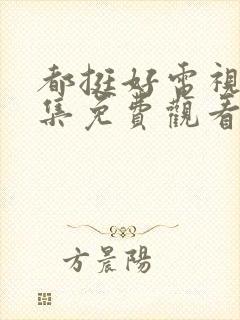 都挺好電視
集免費觀看
方晨陽